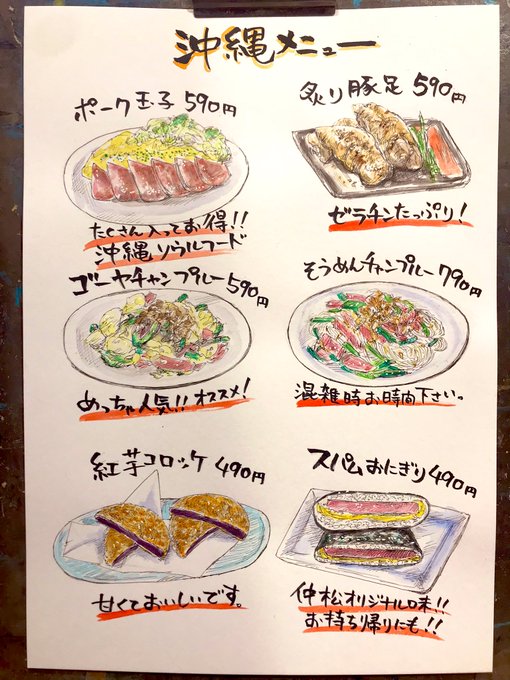 沖縄メニュー
ポーク玉子 590円
たくさん入ってお得!!
沖縄ソウルフード
炙り豚足 590円
ゼラチンたっぷり!
ゴーヤチャンプルー 590円
めっちゃ人気!! オススメ!
そうめんチャンプルー 790円
混雑時お時間下さい。
紅芋コロッケ 490円
甘くておいしいです。
スパムおにぎり 490円
仲松オリジナル味!!
お持ち帰りにも!!